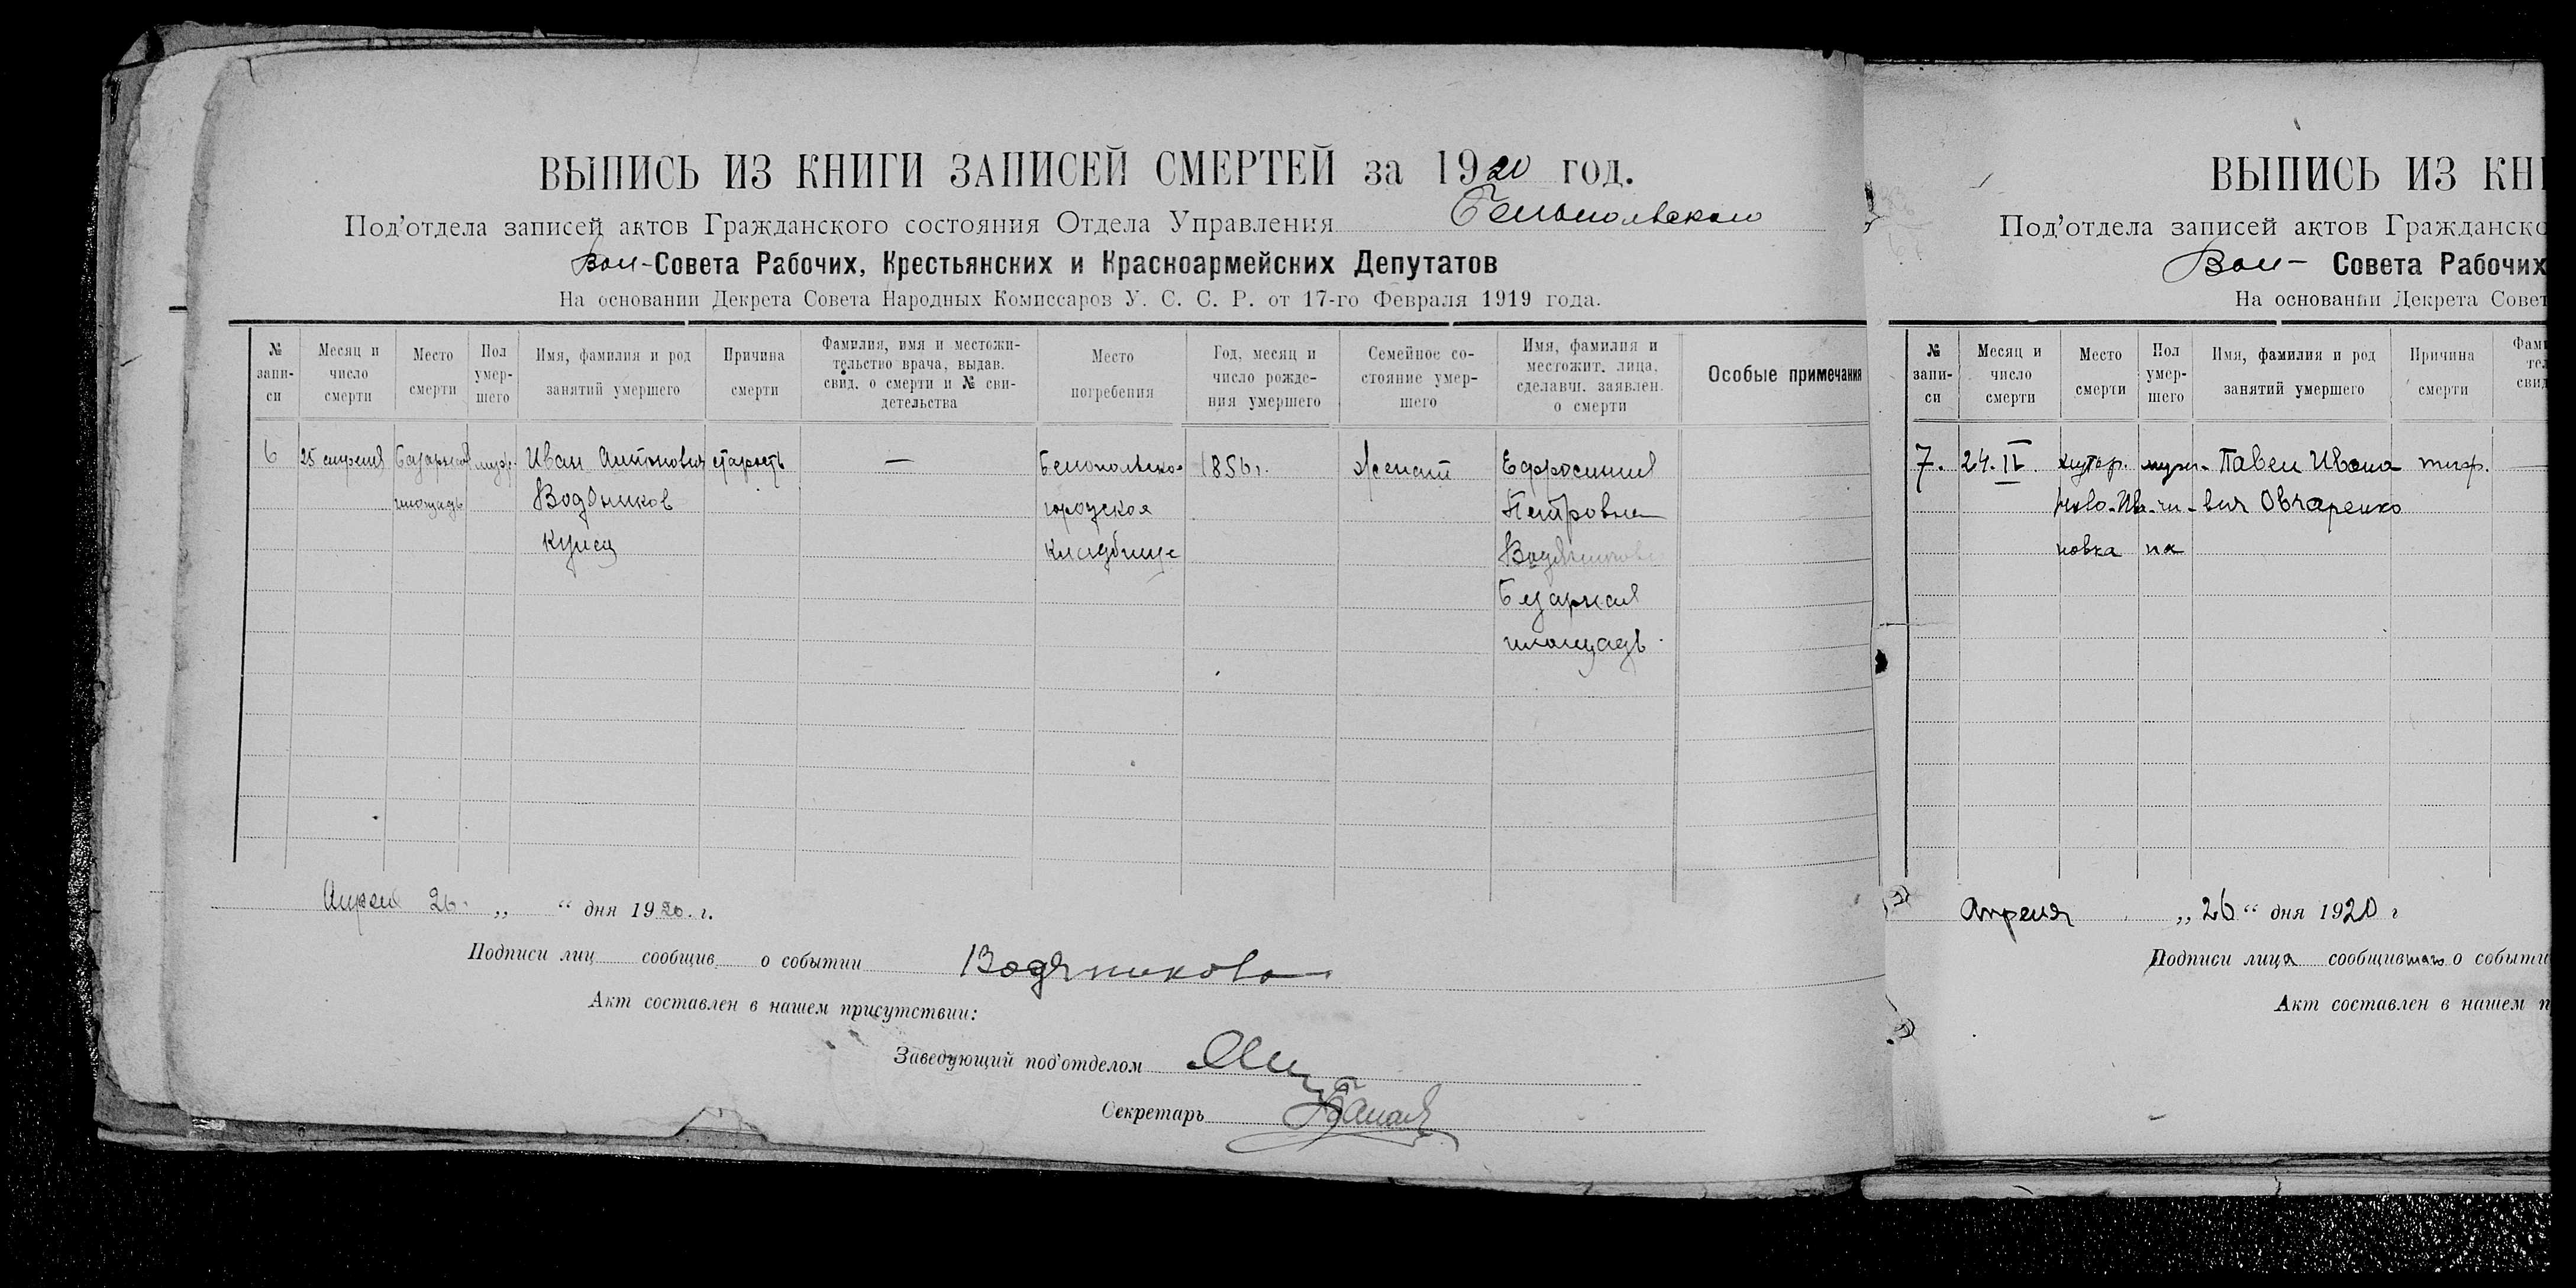 ВЫПИСЬ ИЗ КНИГИ ЗАПИСЕЙ СМЕРТЕЙ за 1920 год.
Под'отдела записей актов Гражданского состояния Отдела Управления Белопольского
Вол-Совета Рабочих, Крестьянских и Красноармейских Депутатов
На основании Декрета Совета Народных Комиссаров У. С. С. Р. от 17-го Февраля 1919 года.
№ запи-си
Месяц и число смерти
Место смерти
Пол умер-шего
Имя, фамилия и род занятий умершего
Причина смерти
Фамилия, имя и местожи-тельство врача, выдав. свид. о смерти и № сви-детельства
Место погребения
Год, месяц и число рожде-ния умершего
Семейное со-стояние умер-шего
Имя, фамилия и местожит. лица, сделавш. заявлен. о смерти
Особые примечания
6 25 апреля Базарная муж. Иван Антонович старость — Белопольско- 1856 г. женат Ефросиния
площадь Водяников городская Петровна
Купец кладбище Водяникова
Базарная
площадь.
Апрель 26. „ “ дня 1920. г.
Подписи лиц сообщив. о событии Водяникова
Акт составлен в нашем присутствии:
Заведующий под'отделом
Секретарь
ВЫПИСЬ ИЗ КНИ
Под'отдела записей актов Гражданско
Вол- Совета Рабочих
На основании Декрета Совет
№ запи-си
Месяц и число смерти
Место смерти
Пол умер-шего
Имя, фамилия и род занятий умершего
Причина смерти
Фами
тел
свид
7. 24. IV хутор. мужч- Павел Ивано тиф. —
Ново-Ива- чи- вич Овчаренко
новка на
Апреля „ 26 “ дня 1920 г
Подписи лица сообщившаго о событи
Акт составлен в нашем п